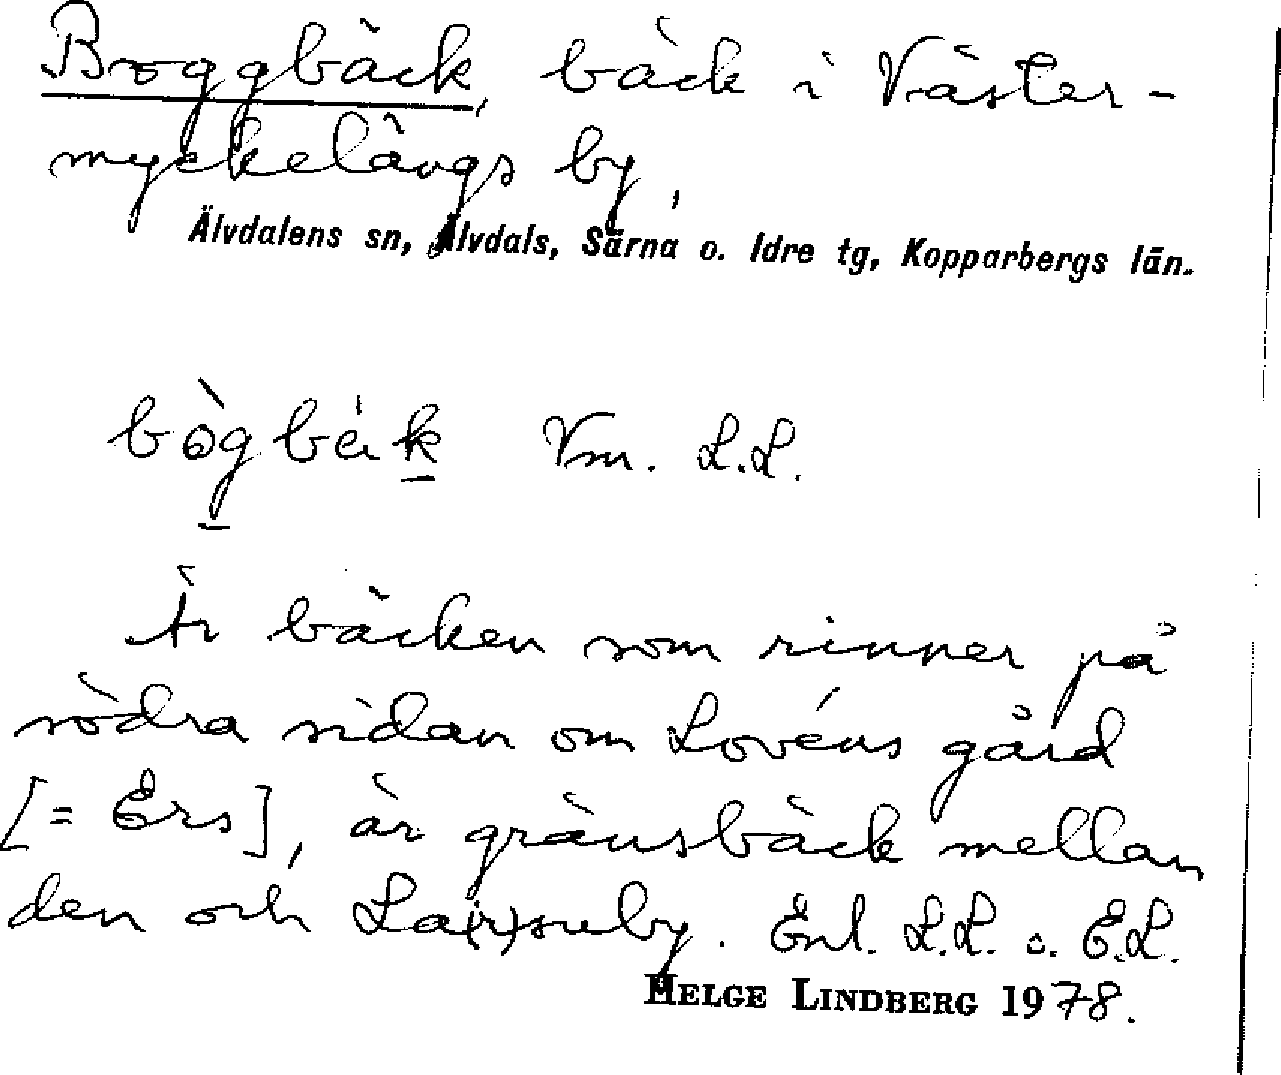 Boggbäck, bäck i Väster-
myckelängs by,
Älvdalens sn, Älvdals, Särna o. Idre tg, Kopparbergs län.
bògbek Vm. L.L.
Är bäcken som rinner på
södra sidan om Lovéns gård
[= Ers], är gränsbäck mellan
den och La(r)suby. Enl. L.L. o. E.L.
HELGE LINDBERG 1978.